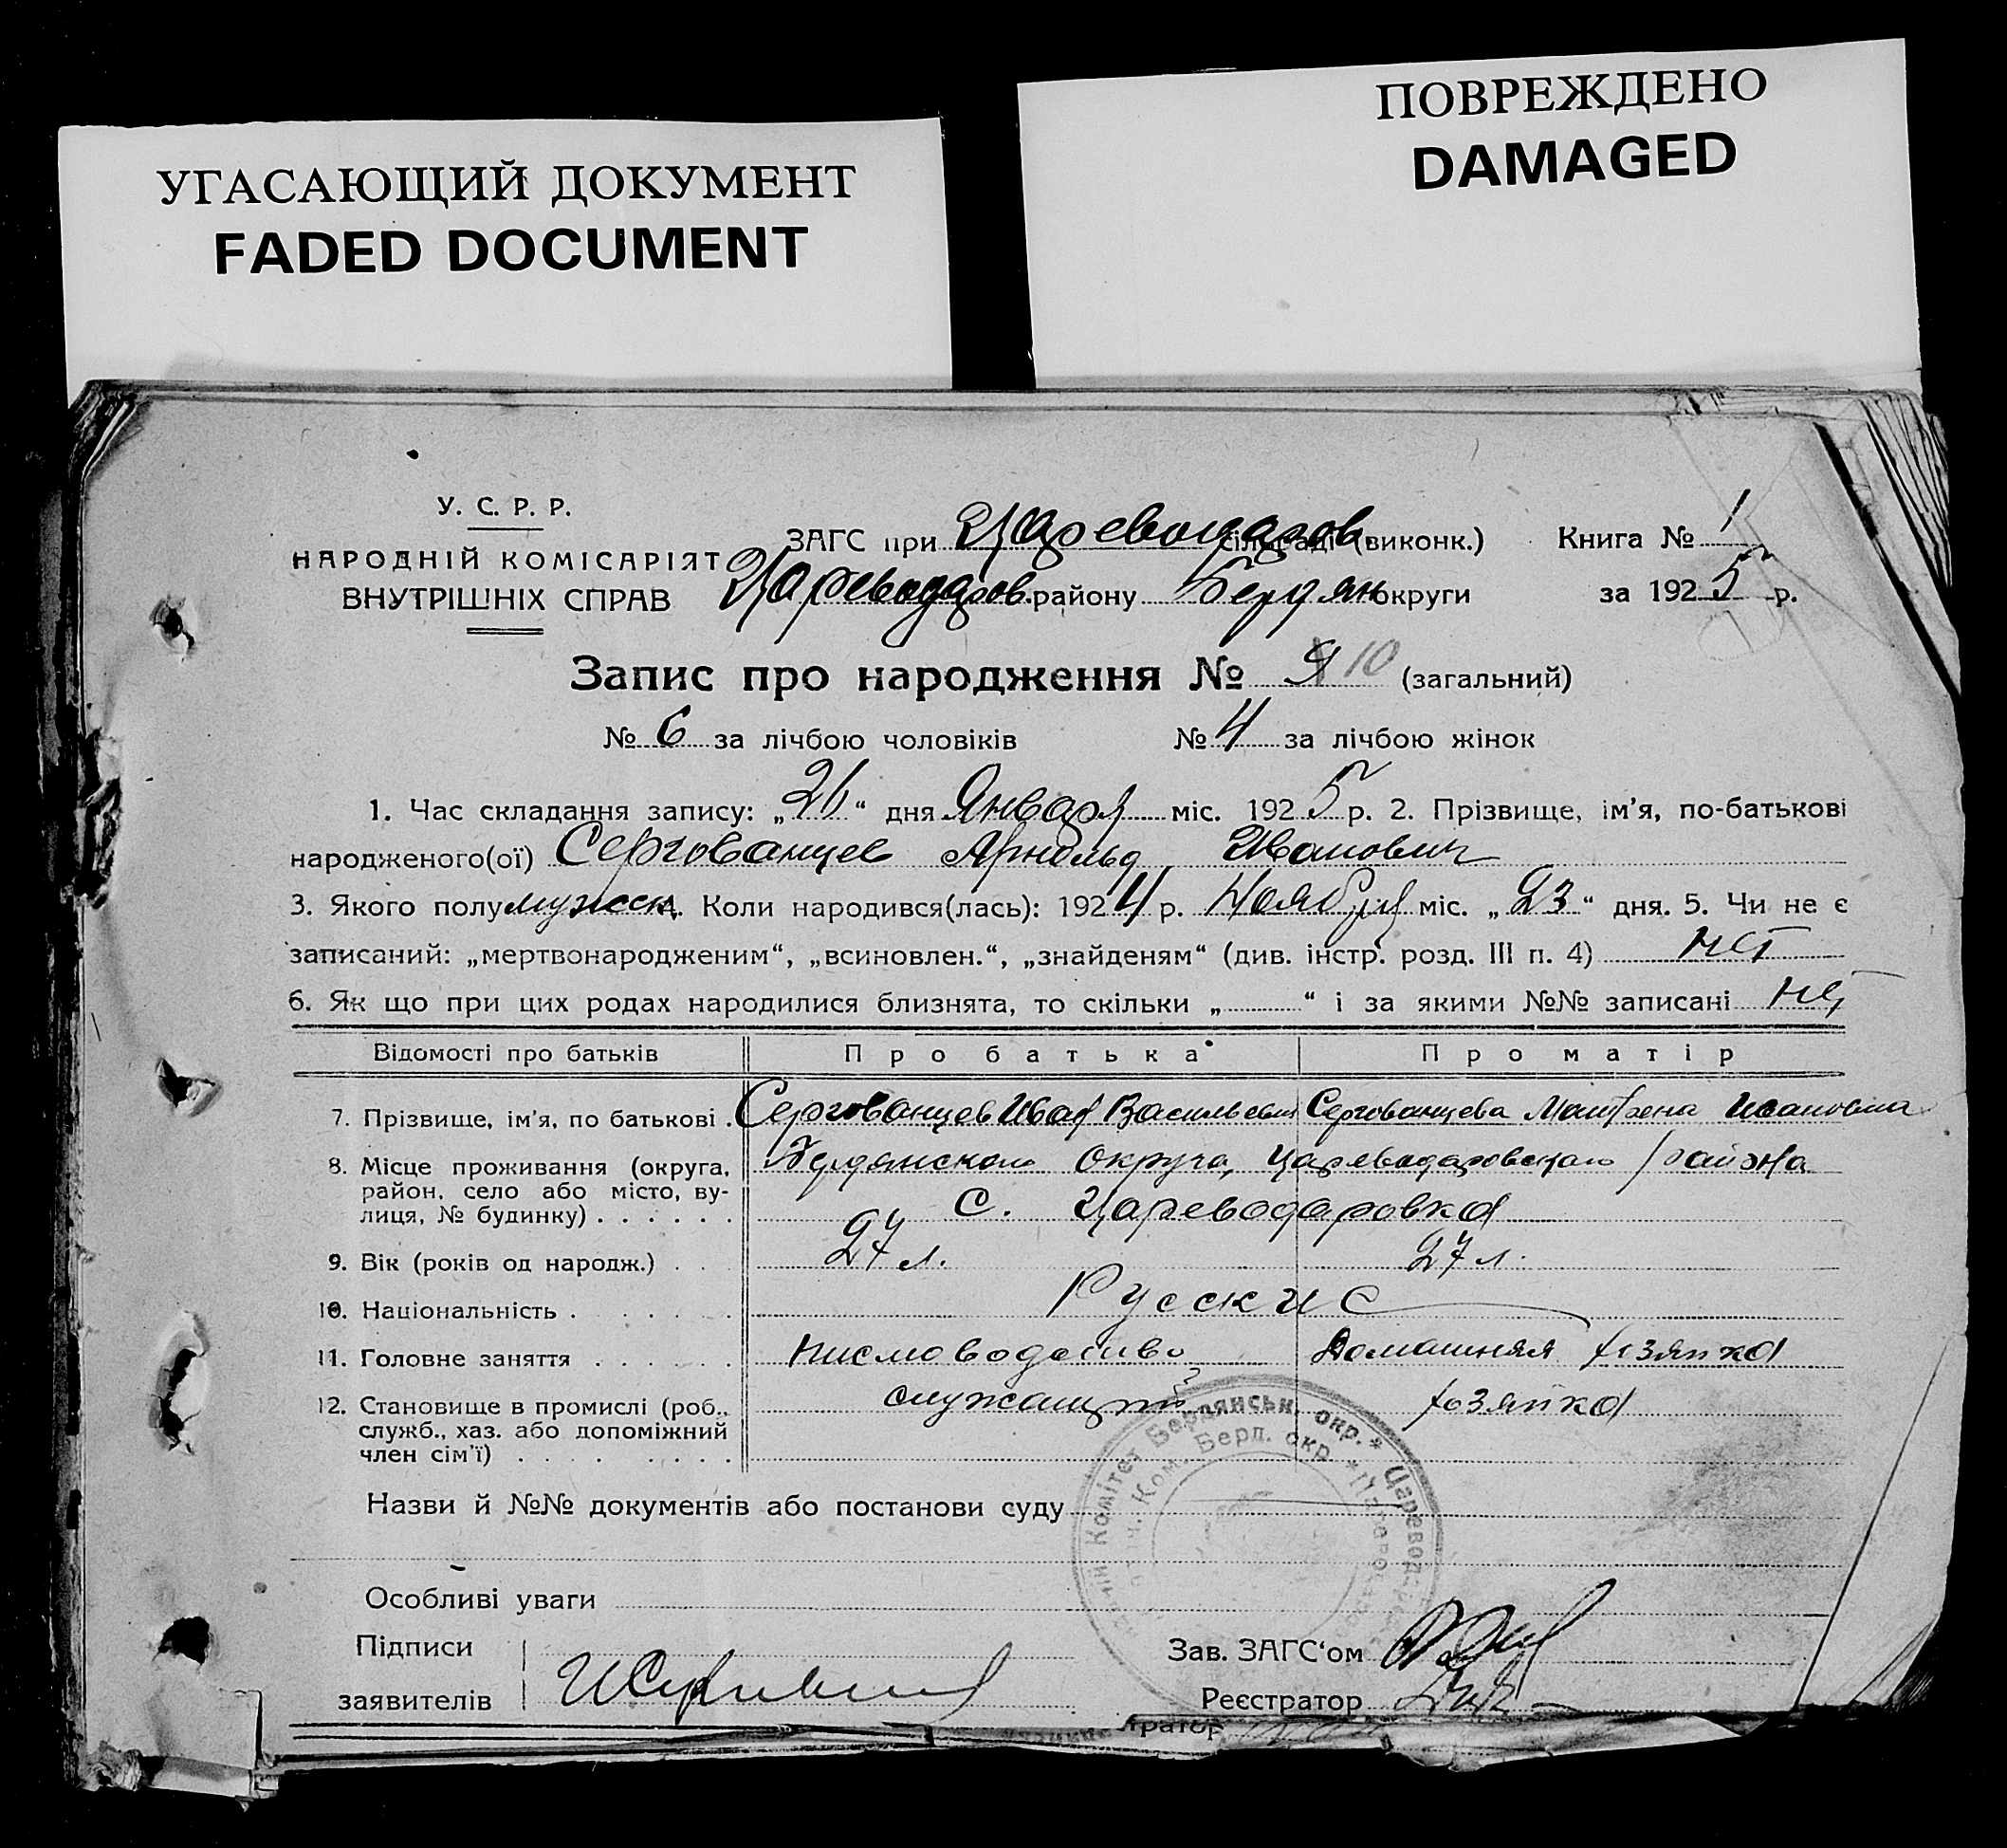 УГАСАЮЩИЙ ДОКУМЕНТ
FADED DOCUMENT
ПОВРЕЖДЕНО
DAMAGED
У. С. Р. Р.
НАРОДНІЙ КОМІСАРІЯТ
ВНУТРІШНІХ СПРАВ
ЗАГС при Цареводаров. сільраді (виконк.) Книга № 1
Цареводаров. району Бердян округи за 1925 р.
Запис про народження № 10 (загальний)
№ 6 за лічбою чоловіків № 4 за лічбою жінок
1. Час складання запису: „26“ дня Января міс. 1925 р. 2. Прізвище, ім'я, по-батькові
народженого(ої) Сергованцев Арнольд Иванович
3. Якого полу мужск. 4. Коли народився(лась): 1924 р. Ноября міс. „23“ дня. 5. Чи не є
записаний: „мертвонародженим“, „всиновлен.“, „знайденям“ (див. інстр. розд. III п. 4) нет
6. Як що при цих родах народилися близнята, то скільки „ “ і за якими №№ записані нет
Відомості про батьків Про батька Про матір
7. Прізвище, ім'я, по батькові . Сергованцев Иван Васильевич Сергованцева Матрена Ивановна
8. Місце проживання (округа, Бердянского округа, Цареводаровского района
район, село або місто, ву-
лиця, № будинку) . . . . . . с. Цареводаровка
9. Вік (років од народж.) . . . 27 л. 27 л.
10. Національність . . . . . . Русские
11. Головне заняття . . . . . . писмоводство Домашняя хозяйка
12. Становище в промислі (роб., служащий хозяйка
служб., хаз. або допоміжний
член сім'ї) . . . . . . . .
Комітет Бердянськ. окр. * Царевод.
Ком. Берд. окр. *
Назви й №№ документів або постанови суду
Особливі уваги
Підписи Зав. ЗАГС'ом
заявителів Реєстратор
тратор